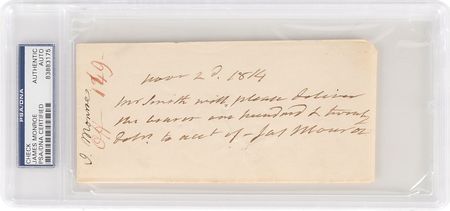 PSA/DNA
AUTHENTIC
AUTO
83883175
CHECK
JAMES MONROE
PSA/DNA CERTIFIED
J. Monroe
149-
Novr 2d. 1814
Mr Smith will please deliver
the bearer one hundred & twenty
dolrs. to acct of - Jas Monroe